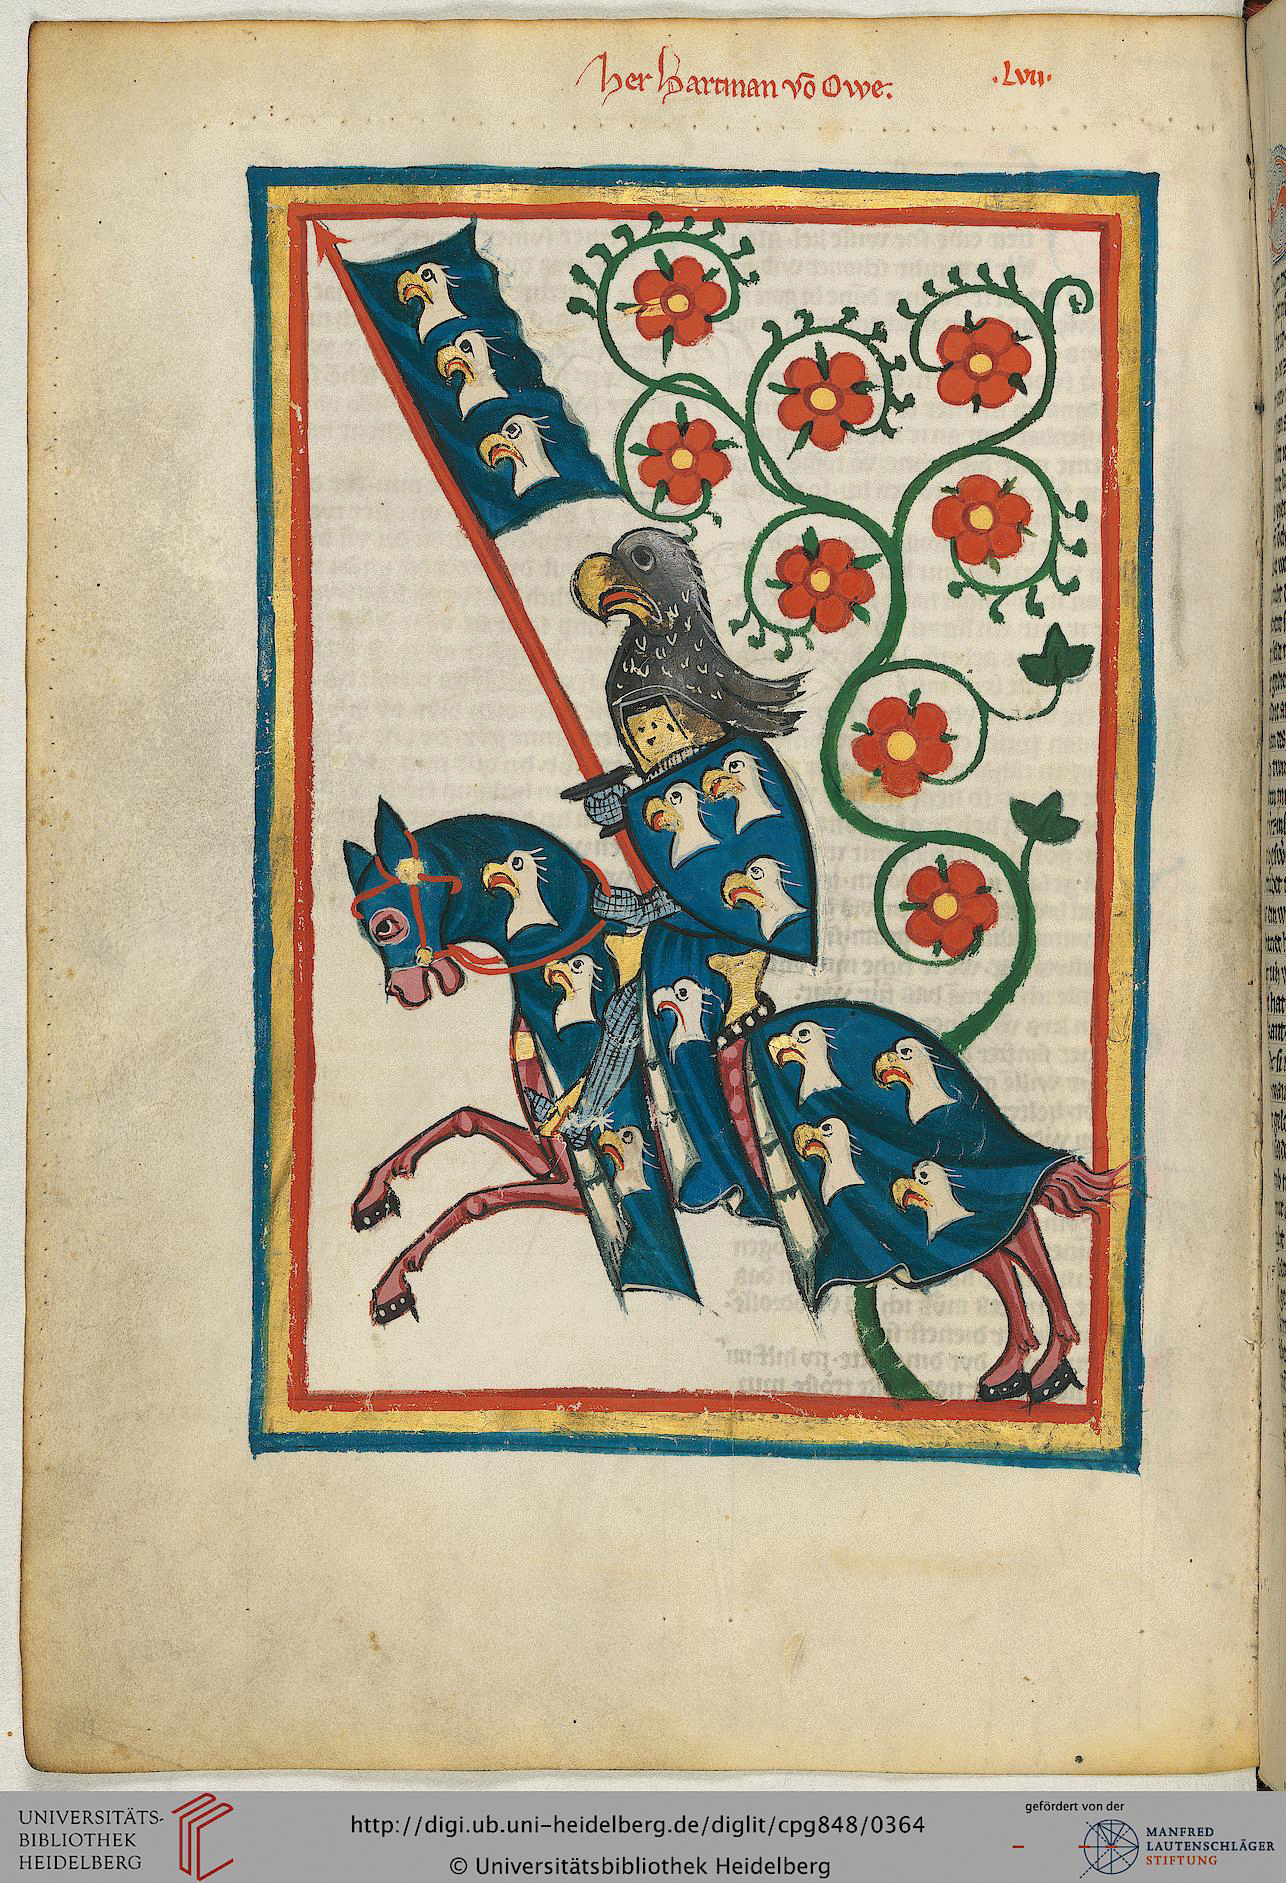 her hartman vō Owe.
·Lvii·
UNIVERSITÄTS-
BIBLIOTHEK
HEIDELBERG
http://digi.ub.uni-heidelberg.de/diglit/cpg848/0364
© Universitätsbibliothek Heidelberg
gefördert von der
MANFRED
LAUTENSCHLÄGER
STIFTUNG